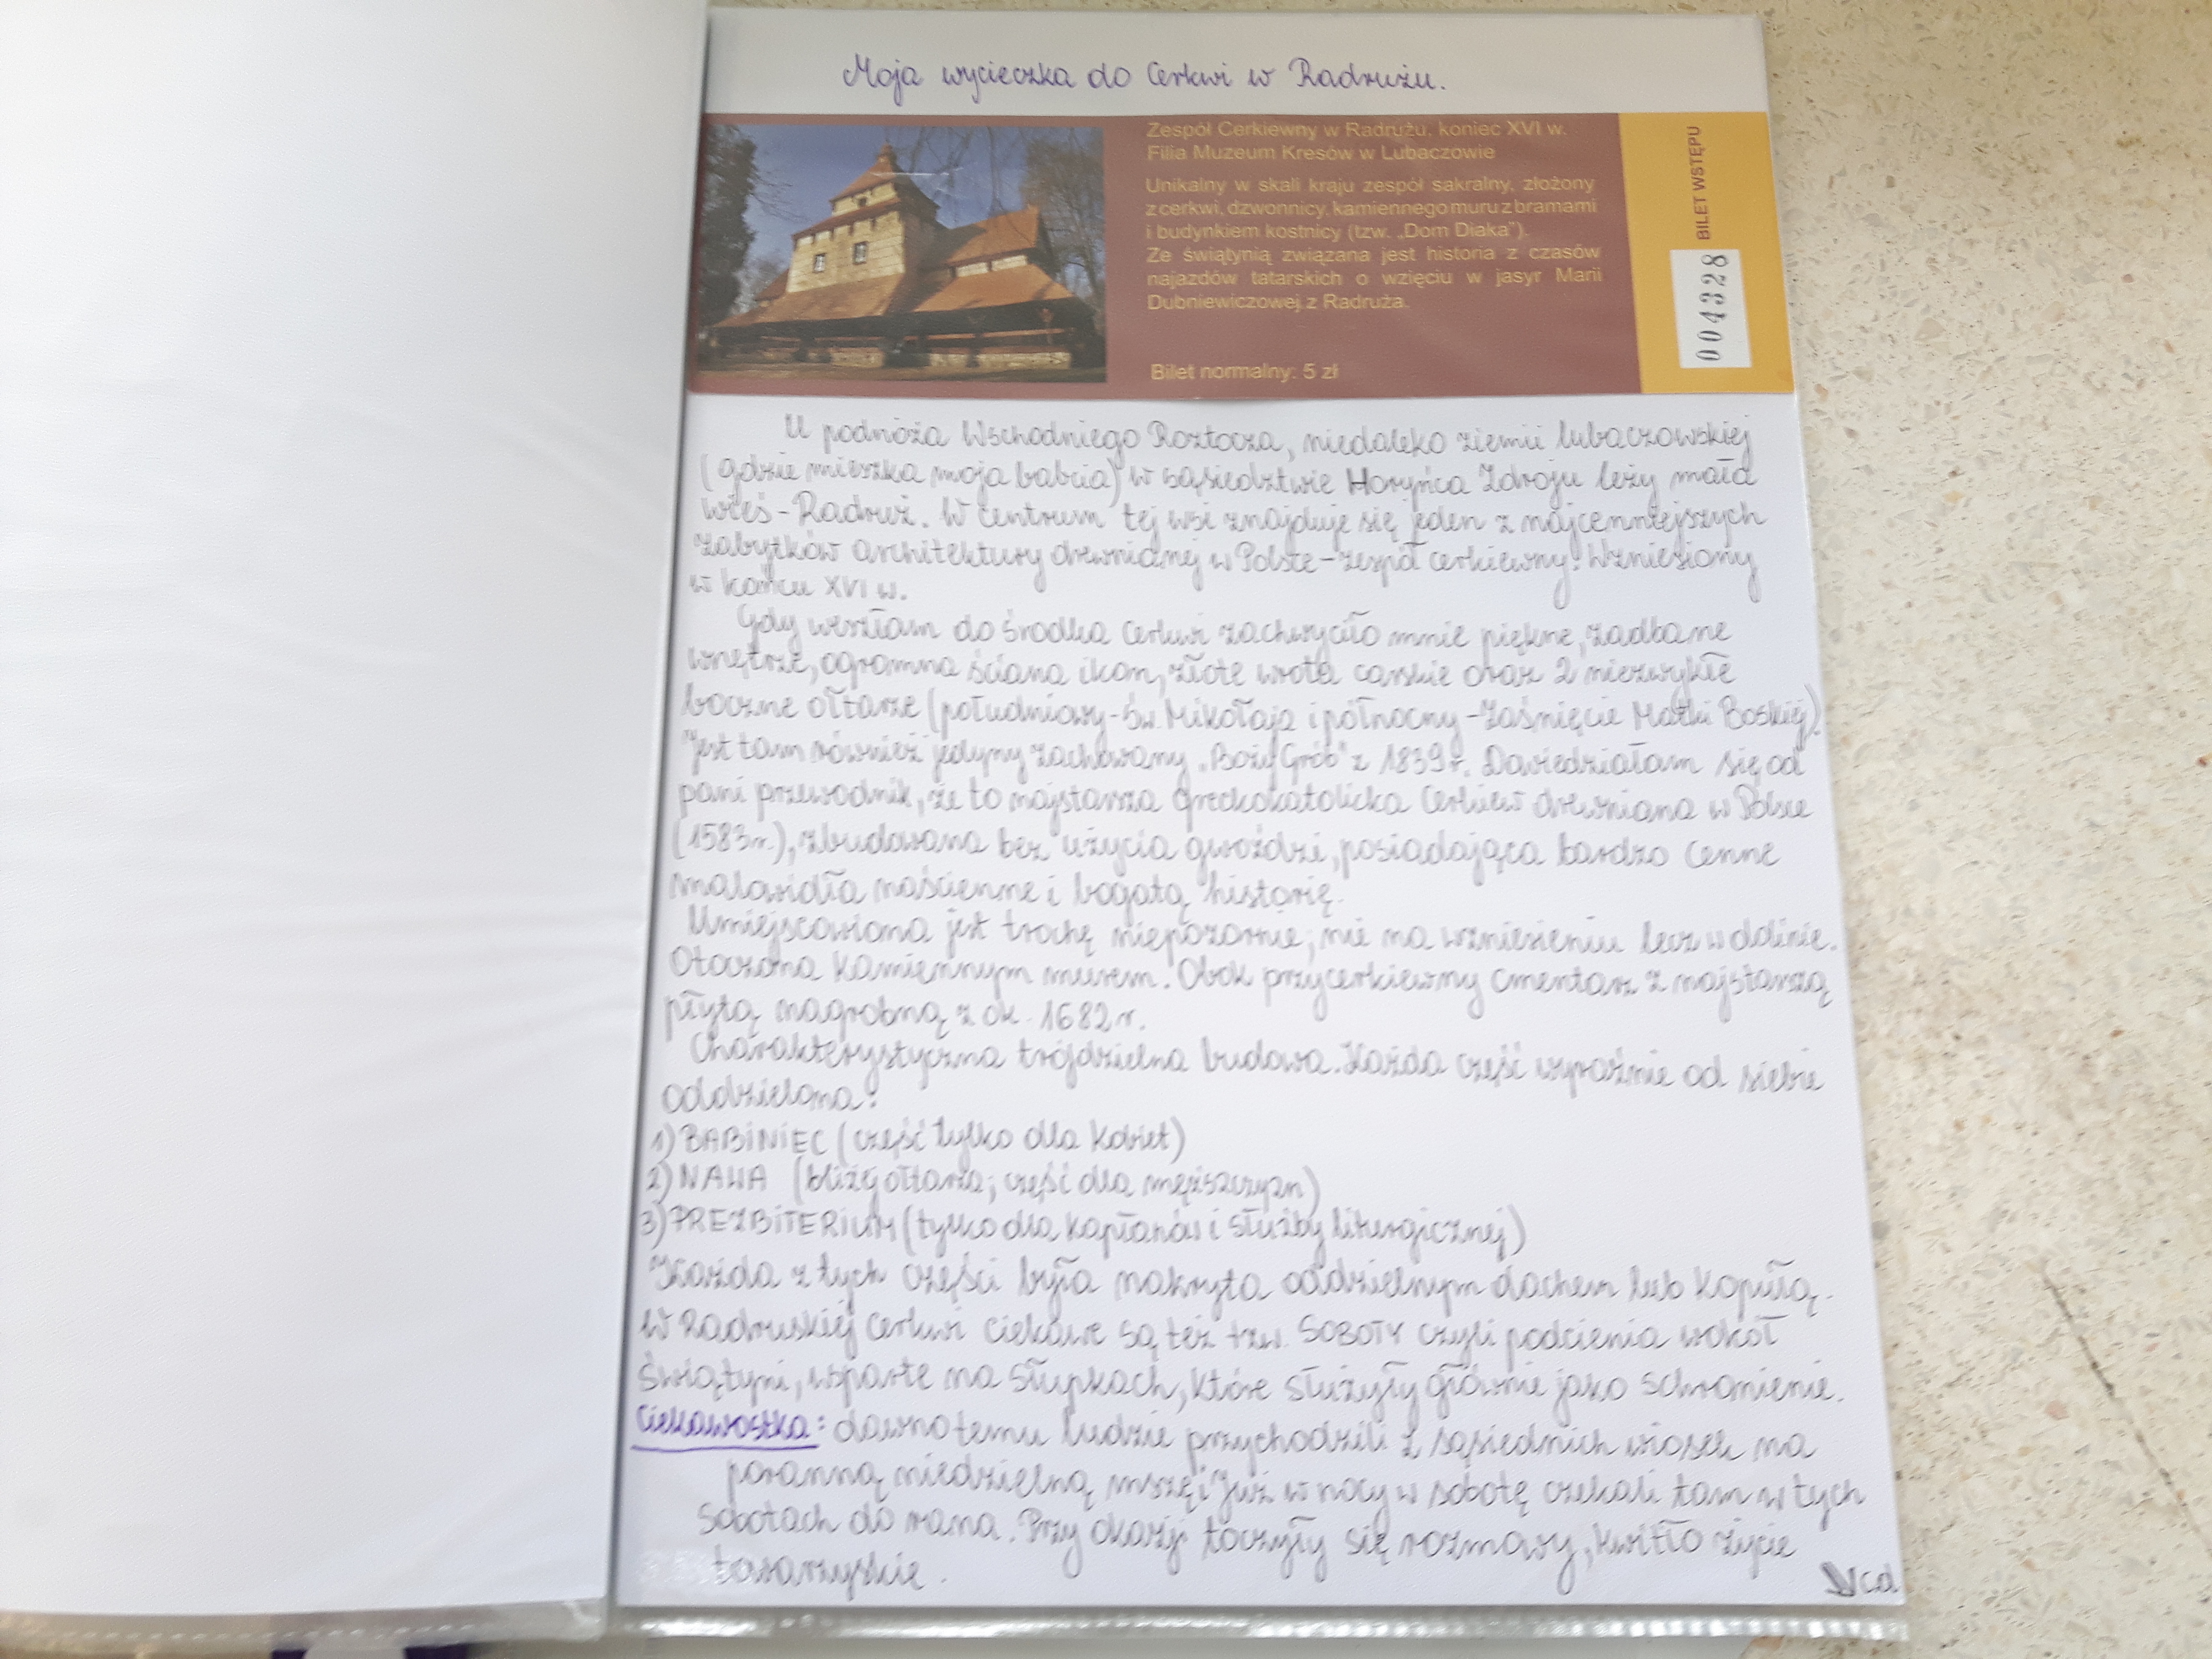 Moja wycieczka do Cerkwi w Radrużu.
Zespół Cerkiewny w Radrużu, koniec XVI w.
Filia Muzeum Kresów w Lubaczowie
Unikalny w skali kraju zespół sakralny, złożony
z cerkwi, dzwonnicy, kamiennego muru z bramami
i budynkiem kostnicy (tzw. „Dom Diaka").
Ze świątynią związana jest historia z czasów
najazdów tatarskich o wzięciu w jasyr Marii
Dubniewiczowej z Radruża.
Bilet normalny: 5 zł
BILET WSTĘPU
004328
U podnóża Wschodniego Roztocza, niedaleko ziemii lubaczowskiej
(gdzie mieszka moja babcia) w sąsiedztwie Horyńca Zdroju leży mała
wieś - Radruż. W centrum tej wsi znajduje się jeden z najcenniejszych
zabytków architektury drewnianej w Polsce - zespół cerkiewny. Wzniesiony
w końcu XVI w.
Gdy weszłam do środka Cerkwi zachwyciło mnie piękne, zadbane
wnętrze, ogromna ściana ikon, złote wrota carskie oraz 2 niezwykłe
boczne ołtarze (południowy - św. Mikołaja i północny - Zaśnięcie Matki Boskiej).
Jest tam również jedyny zachowany „Boży Grób" z 1839 r. Dowiedziałam się od
pani przewodnik, że to najstarsza greckokatolicka Cerkiew drewniana w Polsce
(1583 r.), zbudowana bez użycia gwoździ, posiadająca bardzo cenne
malowidła naścienne i bogatą historię.
Umiejscowiona jest trochę niepozornie; nie na wzniesieniu lecz w dolinie.
Otoczona kamiennym murem. Obok przycerkiewny cmentarz z najstarszą
płytą nagrobną z ok. 1682 r.
Charakterystyczna trójdzielna budowa. Każda część wyraźnie od siebie
oddzielona:
1) BABINIEC (część tylko dla Kobiet)
2) NAWA (bliżej ołtarza; część dla męższczyzn)
3) PREZBITERIUM (tylko dla kapłanów i służby liturgicznej)
Każda z tych części była nakryta oddzielnym dachem lub kopułą.
W Radruskiej Cerkwi ciekawe są też tzw. SOBOTY czyli podcienia wokół
świątyni, wsparte na słupkach, które służyły głównie jako schronienie.
Ciekawostka: dawno temu ludzie przychodzili z sąsiednich wiosek na
poranną niedzielną mszę i już w nocy w sobotę czekali tam w tych
Sobotach do rana. Przy okazji toczyły się rozmowy, kwitło życie
towarzyskie.
cd